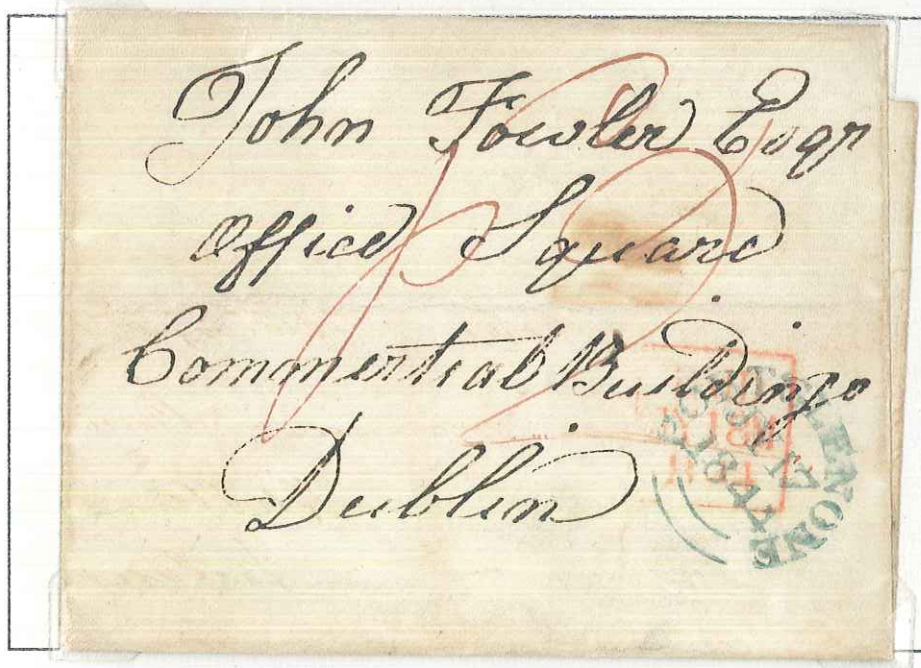 John Fowler Esqr
Office Square
Commertial Buildings
Dublin
PORTGLENONE